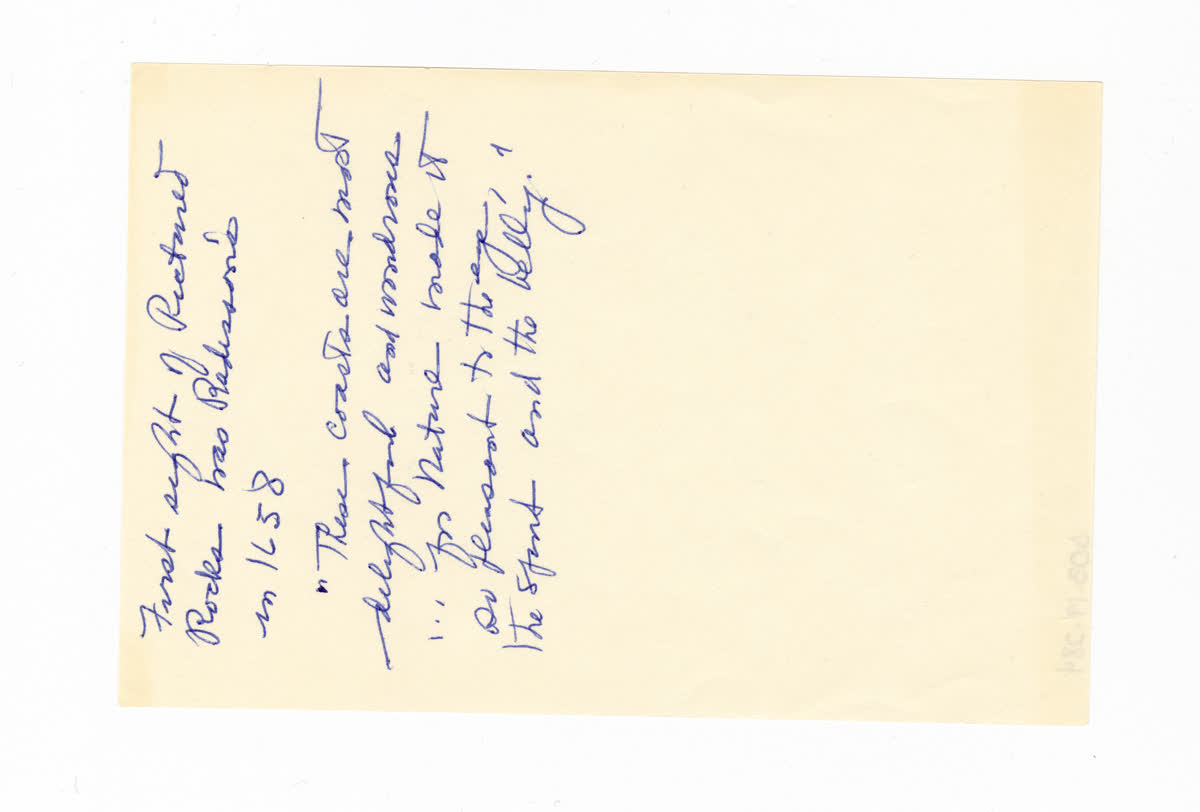 First sight of Pictured
Rocks was Radisson's
in 1658
"These coasts are most
delightful and wondrous
... for Nature made it
so pleasant to the eye,
the spirit and the belly."